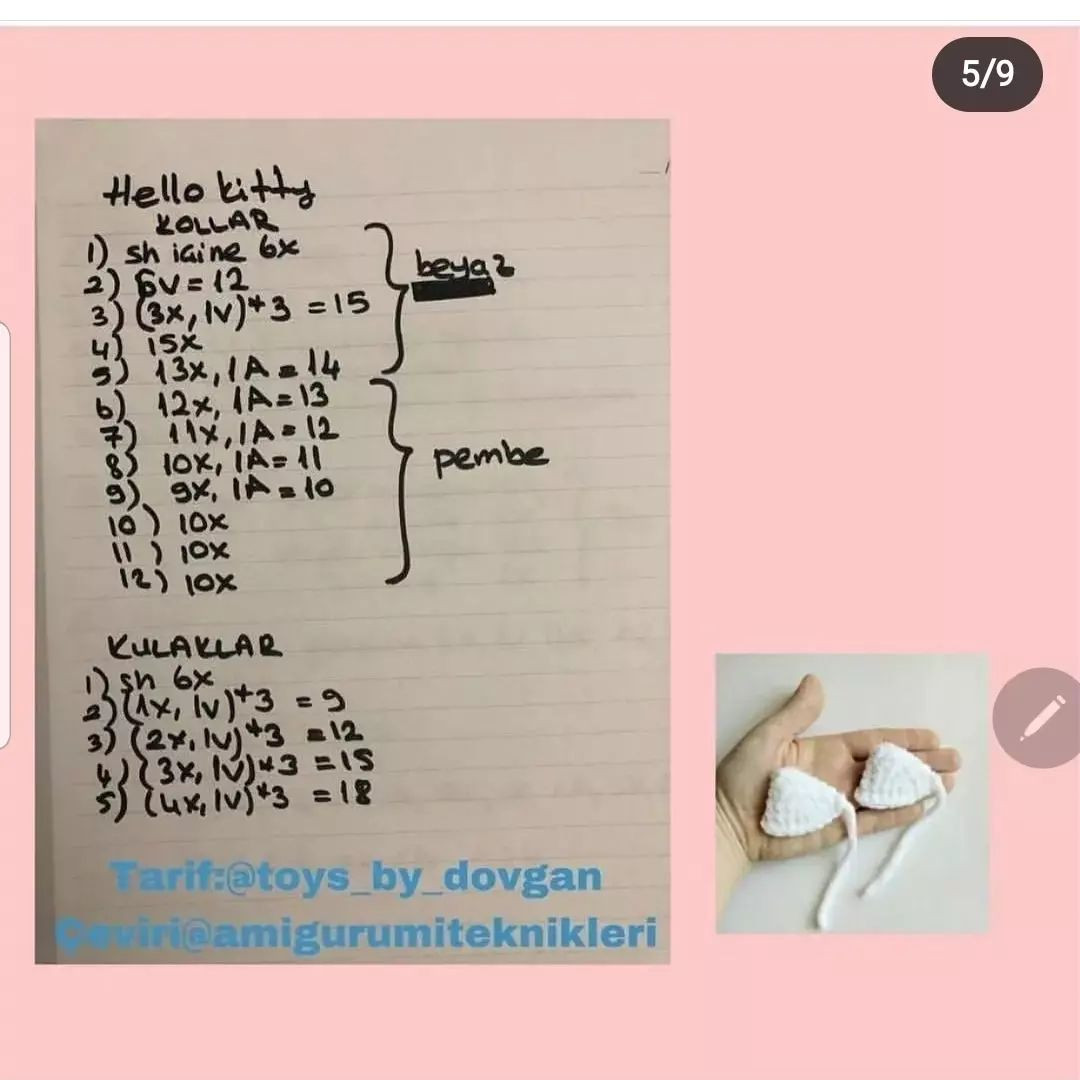 5/9
Hello kitty
KOLLAR
1) sh içine 6x
2) 6V = 12
3) (3x, 1v)*3 = 15
4) 15x
5) 13x, 1A = 14
6) 12x, 1A = 13
7) 11x, 1A = 12
8) 10x, 1A = 11
9) 9x, 1A = 10
10) 10x
11) 10x
12) 10x
beyaz
pembe
KULAKLAR
1) sh 6x
2) (1x, 1v)*3 = 9
3) (2x, 1v)*3 = 12
4) (3x, 1v)*3 = 15
5) (4x, 1v)*3 = 18
Tarif:@toys_by_dovgan
Çeviri@amigurumiteknikleri